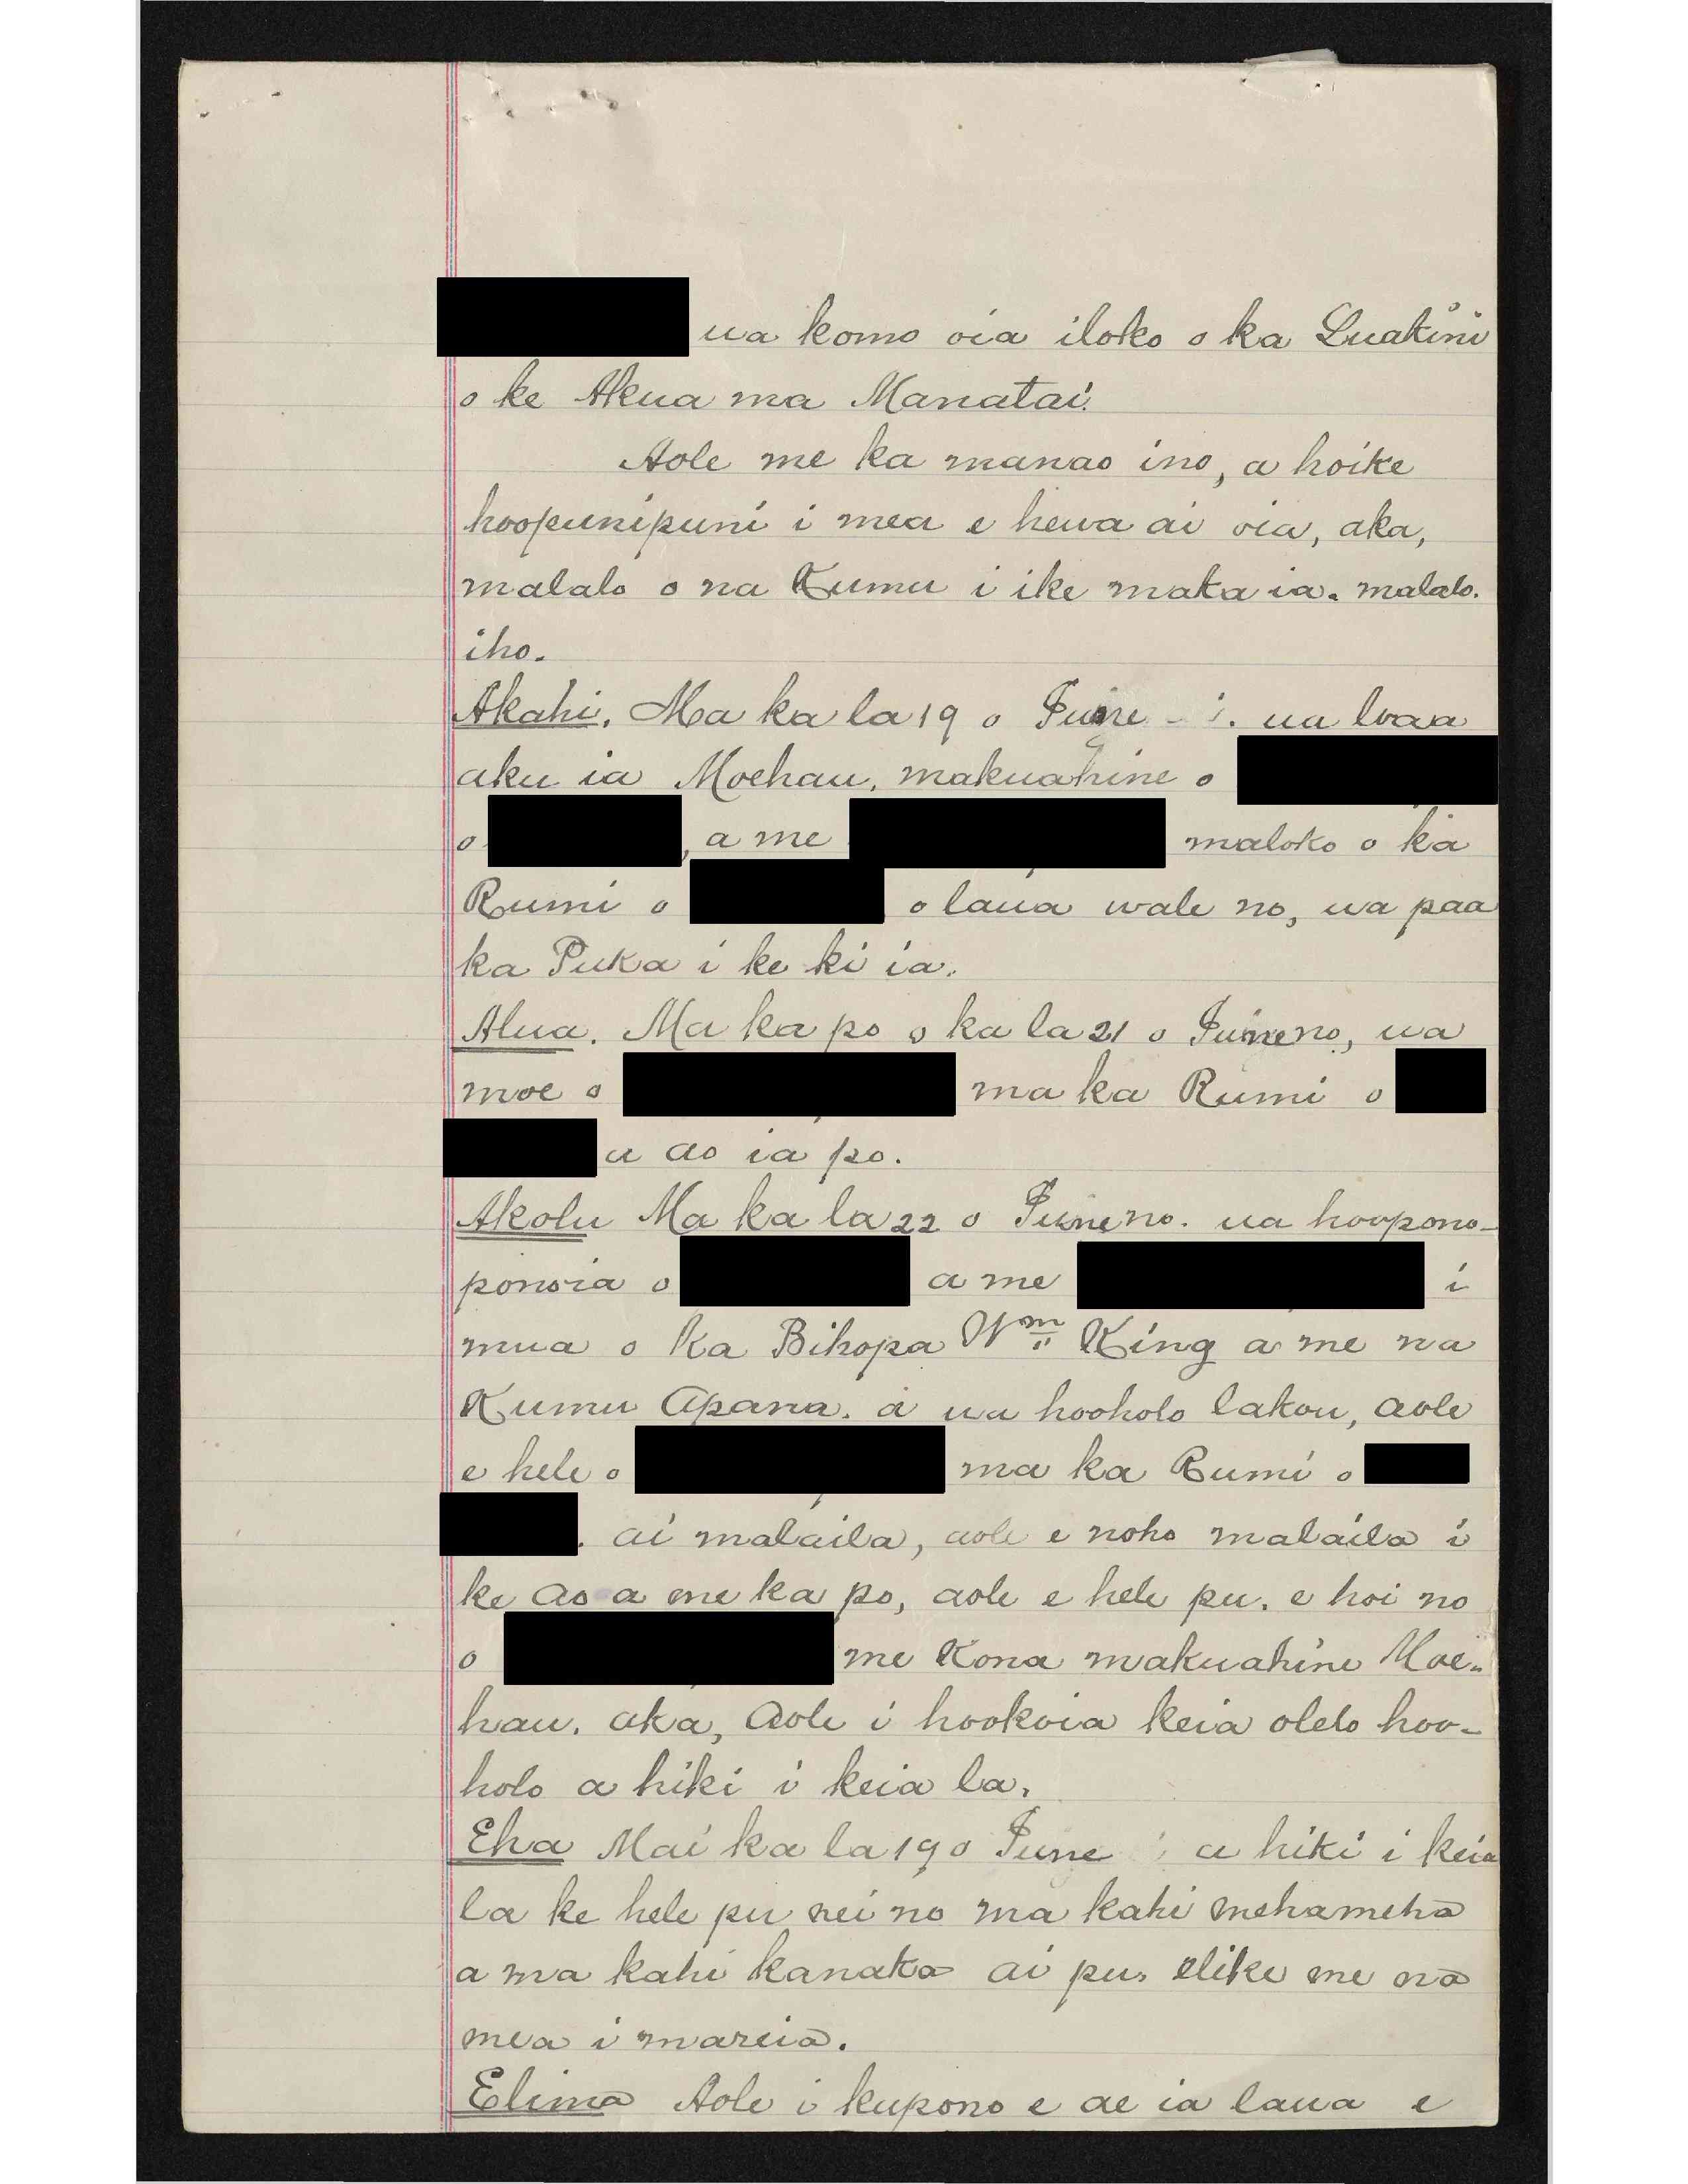 ua komo oia iloko o ka Luakini
o ke Akua ma Manatai.
Aole me ka manao ino, a hoike
hoopunipuni i mea e hewa ai oia, aka,
malalo o na Kumu i ike maka ia. malalo.
iho.
Akahi. Ma ka la 19 o June ua loaa
aku ia Moehau, makuahine o
o , a me maloko o ka
Rumi o o laua wale no, ua paa
ka Puka i ke ki ia.
Alua. Ma ka po o ka la 21 o June no, ua
moe o ma ka Rumi o
a ao ia po.
Akolu Ma ka la 22 o June no. ua hoopono-
ponoia o a me i
mua o ka Bihopa Wm King a me na
Kumu Apana. a ua hooholo lakou, aole
e hele o ma ka Rumi o
. ai malaila, aole e noho malaila i
ke ao a me ka po, aole e hele pu. e hoi no
o me Kona makuahine Moe-
hau. aka, Aole i hookoia keia olelo hoo-
holo a hiki i keia la.
Eha Mai ka la 19 o June a hiki i keia
la ke hele pu nei no ma kahi mehameha
a ma kahi kanaka ai pu. elike me na
mea i mareia.
Elima Aole i kupono e ae ia laua e